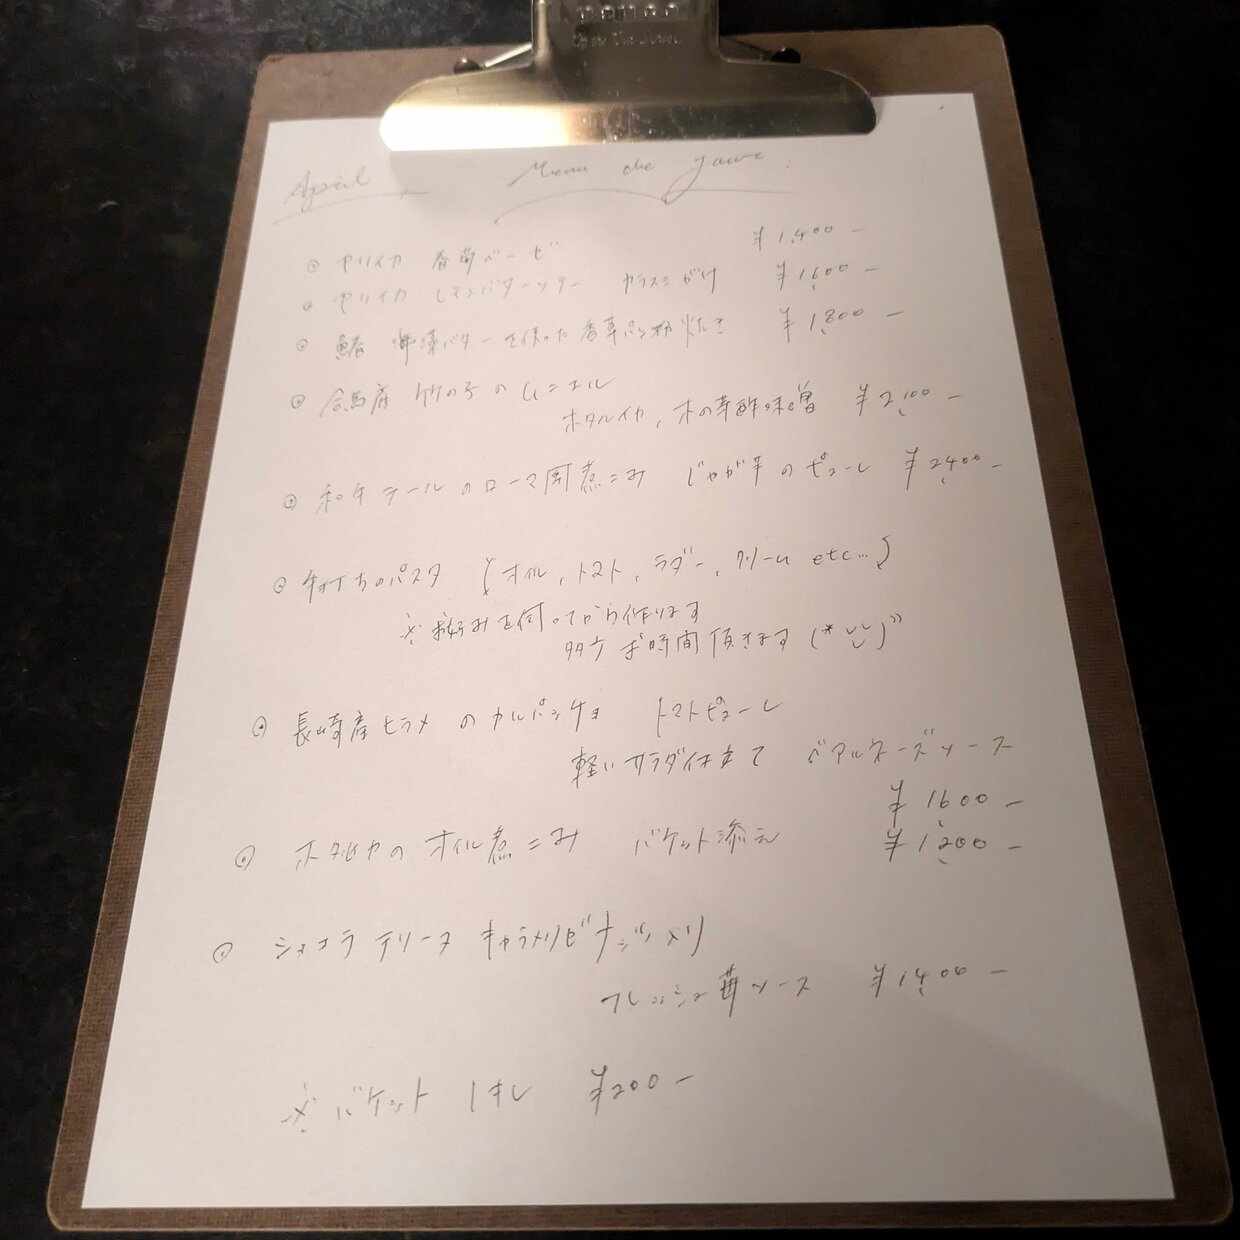 April Menu de jour
◎ ヤリイカ 春菊バーゼ ¥1,400 −
◎ ヤリイカ レモンバターソテー カラスミがけ ¥1,600 −
◎ 鰆 海藻バターを使った香草パン粉焼き ¥1,800 −
◎ 合馬産 竹の子のムニエル
ホタルイカ、木の芽酢味噌 ¥2,100 −
◎ 和牛テールのローマ風煮こみ じゃが芋のピューレ ¥2,400 −
◎ 手打ちのパスタ (オイル、トマト、ラグー、クリーム etc...)
※ お好みを伺ってから作ります
多少お時間頂きます (*ᴗᴗ)"
◎ 長崎産ヒラメのカルパッチョ トマトピューレ
軽いサラダ仕立て ベアルネーズソース
¥1,600 −
◎ ホタルイカのオイル煮こみ バケット添え ¥1,200 −
◎ ショコラテリーヌ キャラメリゼナッツ入り
フレッシュ苺ソース ¥1,400 −
※ バケット 1きれ ¥200 −